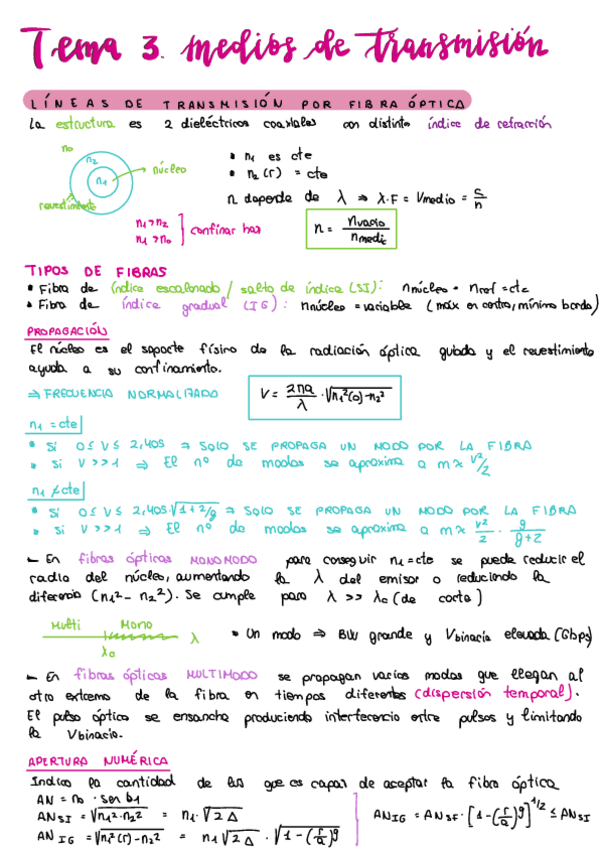 Tema 3. medios de transmisión
LÍNEAS DE TRANSMISIÓN POR FIBRA ÓPTICA
La estructura es 2 dieléctricos coaxiales con distinto índice de refracción
n0
n2
n1
núcleo
revestimiento
• n1 es cte
• n2(r) = cte
n depende de λ ⇒ λ·F = Vmedio = c/n
n1 > n2
n1 > n0
confinar haz
n = nvacío / nmedio
TIPOS DE FIBRAS
• Fibra de índice escalonado / salto de índice (SI): nnúcleo = nref = cte
• Fibra de índice gradual (IG): nnúcleo = variable (máx en centro, mínimo borde)
PROPAGACIÓN
El núcleo es el soporte físico de la radiación óptica guiada y el revestimiento
ayuda a su confinamiento.
⇒ FRECUENCIA NORMALIZADO
V = 2πa/λ · √n1²(0)-n2²
n1 = cte
• Si 0 ≤ V ≤ 2,405 ⇒ SOLO SE PROPAGA UN MODO POR LA FIBRA
• Si V >> 1 ⇒ El nº de modos se aproxima a m ≈ V²/2
n1 ≠ cte
• Si 0 ≤ V ≤ 2,405·√1+2/g ⇒ SOLO SE PROPAGA UN MODO POR LA FIBRA
• Si V >> 1 ⇒ El nº de modos se aproxima a m ≈ V²/2 · g/g+2
– En fibras ópticas MONOMODO para conseguir n1=cte se puede reducir el
radio del núcleo, aumentando la λ del emisor o reduciendo la
diferencia (n1² - n2²). Se cumple para λ >> λc (de corte)
Multi Mono
λ
λc
• Un modo ⇒ BW grande y Vbinaria elevada (Gbps)
– En fibras ópticas MULTIMODO se propagan varios modos que llegan al
otro extremo de la fibra en tiempos diferentes (dispersión temporal).
El pulso óptico se ensancha produciendo interferencia entre pulsos y limitando
la Vbinaria.
APERTURA NUMÉRICA
Indica la cantidad de luz que es capaz de aceptar la fibra óptica
AN = n0 · sen θ1
ANSI = √n1²-n2² = n1·√2Δ
ANIG = √n1²(r)-n2² = n1√2Δ · √1-(r/a)^g
ANIG = ANSI · [1-(r/a)^g]^1/2 ≤ ANSI